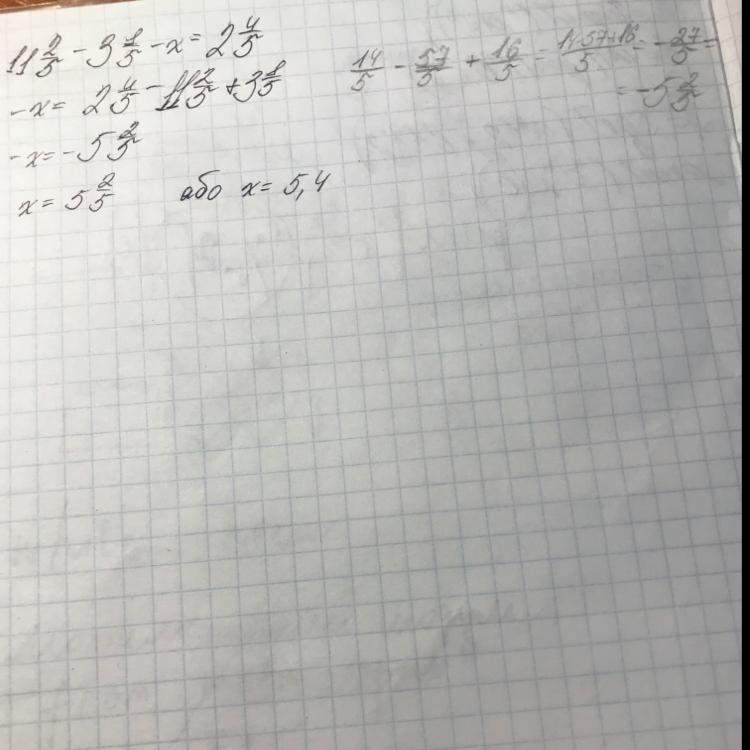 11 2/5 - 3 1/5 - x = 2 4/5
-x = 2 4/5 - 11 2/5 + 3 1/5
-x = -5 2/5
x = 5 2/5 або x = 5,4
14/5 - 57/5 + 16/5 = (14-57+16)/5 = -27/5 =
= -5 2/5